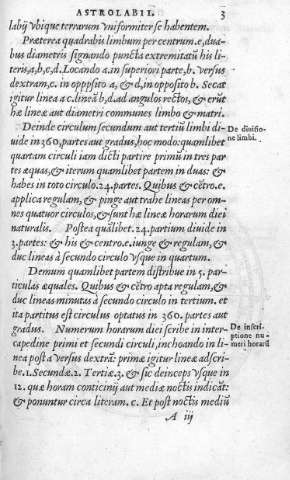 ASTROLABII. 3
labij vbique terrarum vniformiter se habentem.
Præterea quadrabis limbum per centrum. e, dua-
bus diametris signando puncta extremitatū his li-
teris, a, b, c, d. Locando a. in superiori parte, b. versus
dextram, c. in opposito a, & d, in opposito b. Secāt
igitur linea a c. lineā b, d. ad angulos rectos, & erūt
hæ lineæ aut diametri communes limbo & matri.
Deinde circulum secundum aut tertiū limbi di-
uide in 360, partes aut gradus, hoc modo: quamlibet
quartam circuli iam dicti partire primū in tres par
tes æquas, & iterum quamlibet partem in duas: &
habes in toto circulo. 24. partes. Quibus & cētro. e.
applica regulam, & pinge aut trahe lineas per om-
nes quatuor circulos, & sunt hæ lineæ horarum diei
naturalis. Postea quālibet. 24. partium diuide in
3. partes: & his & centro. e. iunge & regulam, &
duc lineas à secundo circulo vsque in quartum.
Demum quamlibet partem distribue in 5. par-
ticulas æquales. Quibus & cētro apta regulam, &
duc lineas minutas à secundo circulo in tertium. et
ita partitus est circulus optatus in 360. partes aut
gradus. Numerum horarum diei scribe in inter-
capedine primi et secundi circuli, inchoando in li-
nea post a versus dextrā: primæ igitur lineæ adscri-
be. 1. Secundæ. 2. Tertiæ. 3, & sic deinceps vsque in
12. quæ horam continuij aut mediæ noctis indicāt:
& ponuntur circa literam. c. Et post noctis mediū
A iij
De diuisio-
ne limbi.
De inscri-
ptione nu-
meri horarū